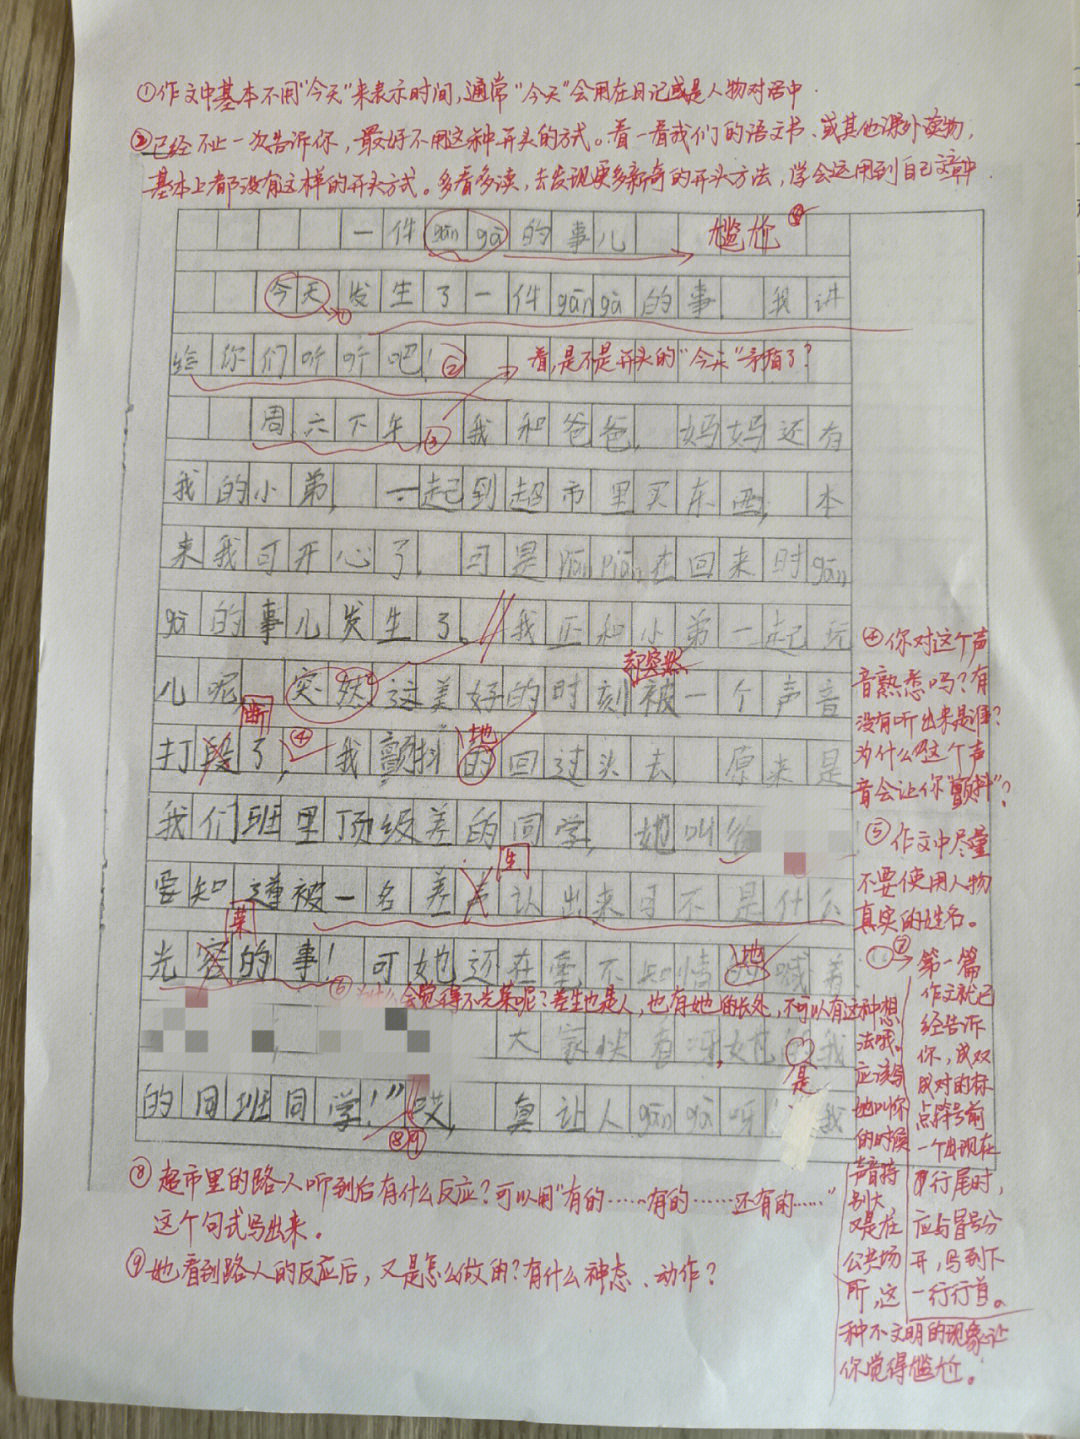 ①作文中基本不用“今天”来表示时间，通常“今天”会用在日记或是人物对话中．
②已经不止一次告诉你，最好不用这种开头的方式。看一看我们的语文书、或其他课外读物，
基本上都没有这样的开头方式。多看多读，去发现更多新奇的开头方法，学会运用到自己文章中
一件gān gà的事儿 尴尬
今天发生了一件gān gà的事 我讲
①
给你们听听吧！② 看，是不是开头的“今天”矛盾了？
周六下午，③我和爸爸，妈妈还有
我的小弟，一起到超市里买东西，本
来我可开心了，可是piān piān在回来时gān
gà的事儿发生了。我正和小弟一起玩
却突然
儿呢 突然这美好的时刻被一个声音
断 地
打段了，④我颤抖的回过头去 原来是
我们班里顶级差的同学，她叫
生
要知道被一名差 认出来可不是什么
荣 地
光容的事！可她还在毫不知情的喊着
⑥ 会觉得不光荣呢？差生也是人，也有她的长处，不可以有这种想
法哦。
大家快看呀 我
是
的同班同学！”哎，真让人gān gà呀 我
⑧⑨
④你对这个声
音熟悉吗？有
没有听出来是谁？
为什么这个声
音会让你“颤抖”？
⑤作文中尽量
不要使用人物
真实的姓名。
⑦第一篇
作文就已
经告诉
你，成双
成对的标
点符号前
一个出现在
行尾时，
应与冒号分
开，写到下
一行行首。
应该写
她叫你
的时候
声音特
别大，
又是在
公共场
所，这
种不文明的现象让
你觉得尴尬。
⑧超市里的路人听到后有什么反应？可以用“有的……有的……还有的……”
这个句式写出来。
⑨她看到路人的反应后，又是怎么做的？有什么神态、动作？